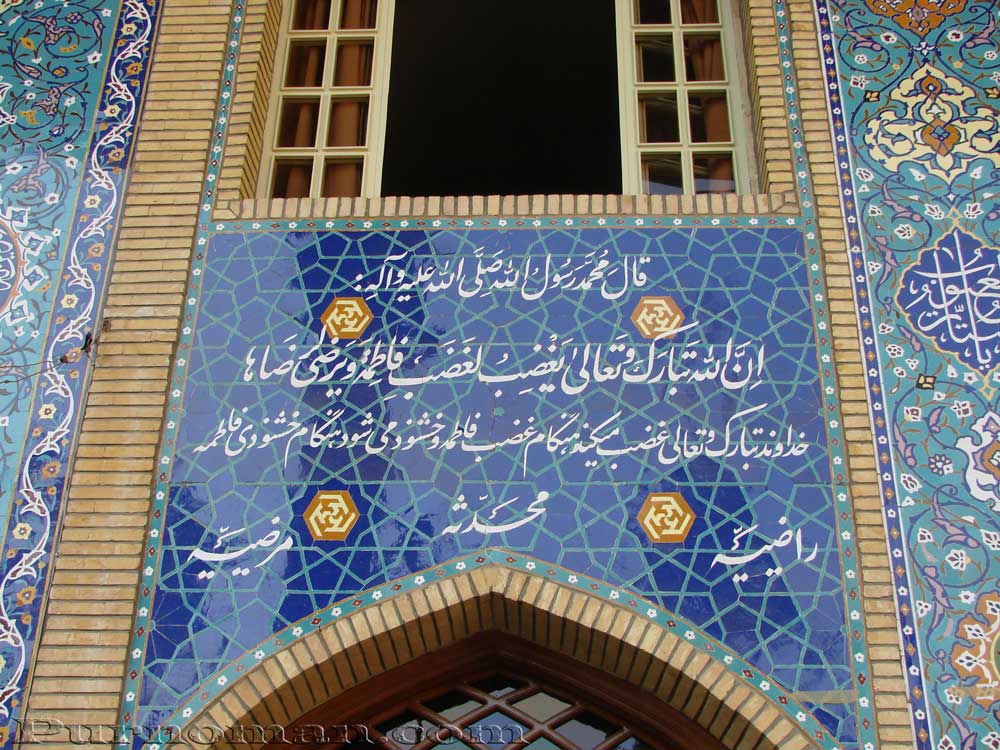 قالَ مُحَمَّدٌ رَسُولُ اللهِ صَلَّى اللهُ عَلَيهِ وَآلِهِ:
اِنَّ اللهَ تَبارَكَ وَتَعالىٰ يَغْضِبُ لِغَضَبِ فاطِمَةَ وَيَرضىٰ لِرِضَاها
خداوند تبارک و تعالی غضب میکند هنگام غضب فاطمه و خشنود می شود هنگام خشنودی فاطمه
راضیّه محدّثه مرضیّه
Purnoman.com